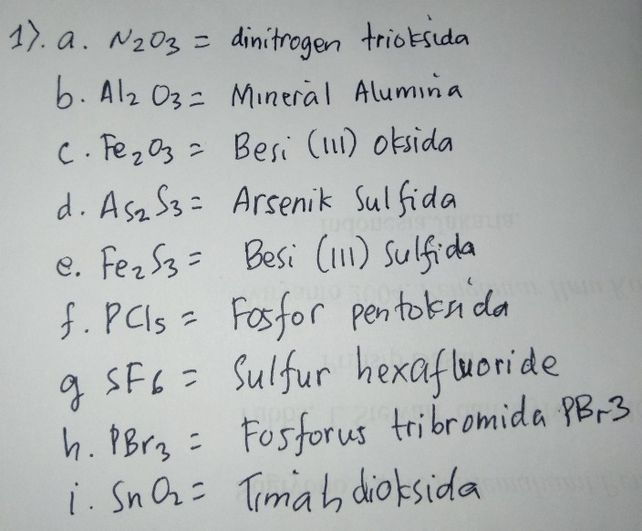 1). a. N2O3 = dinitrogen trioksida
b. Al2 O3 = Mineral Alumina
c. Fe2O3 = Besi (III) oksida
d. As2 S3 = Arsenik Sulfida
e. Fe2 S3 = Besi (III) Sulfida
f. PCl5 = Fosfor pentoksida
g SF6 = Sulfur hexafluoride
h. PBr3 = Fosforus tribromida PBr3
i. SnO2 = Timah dioksida